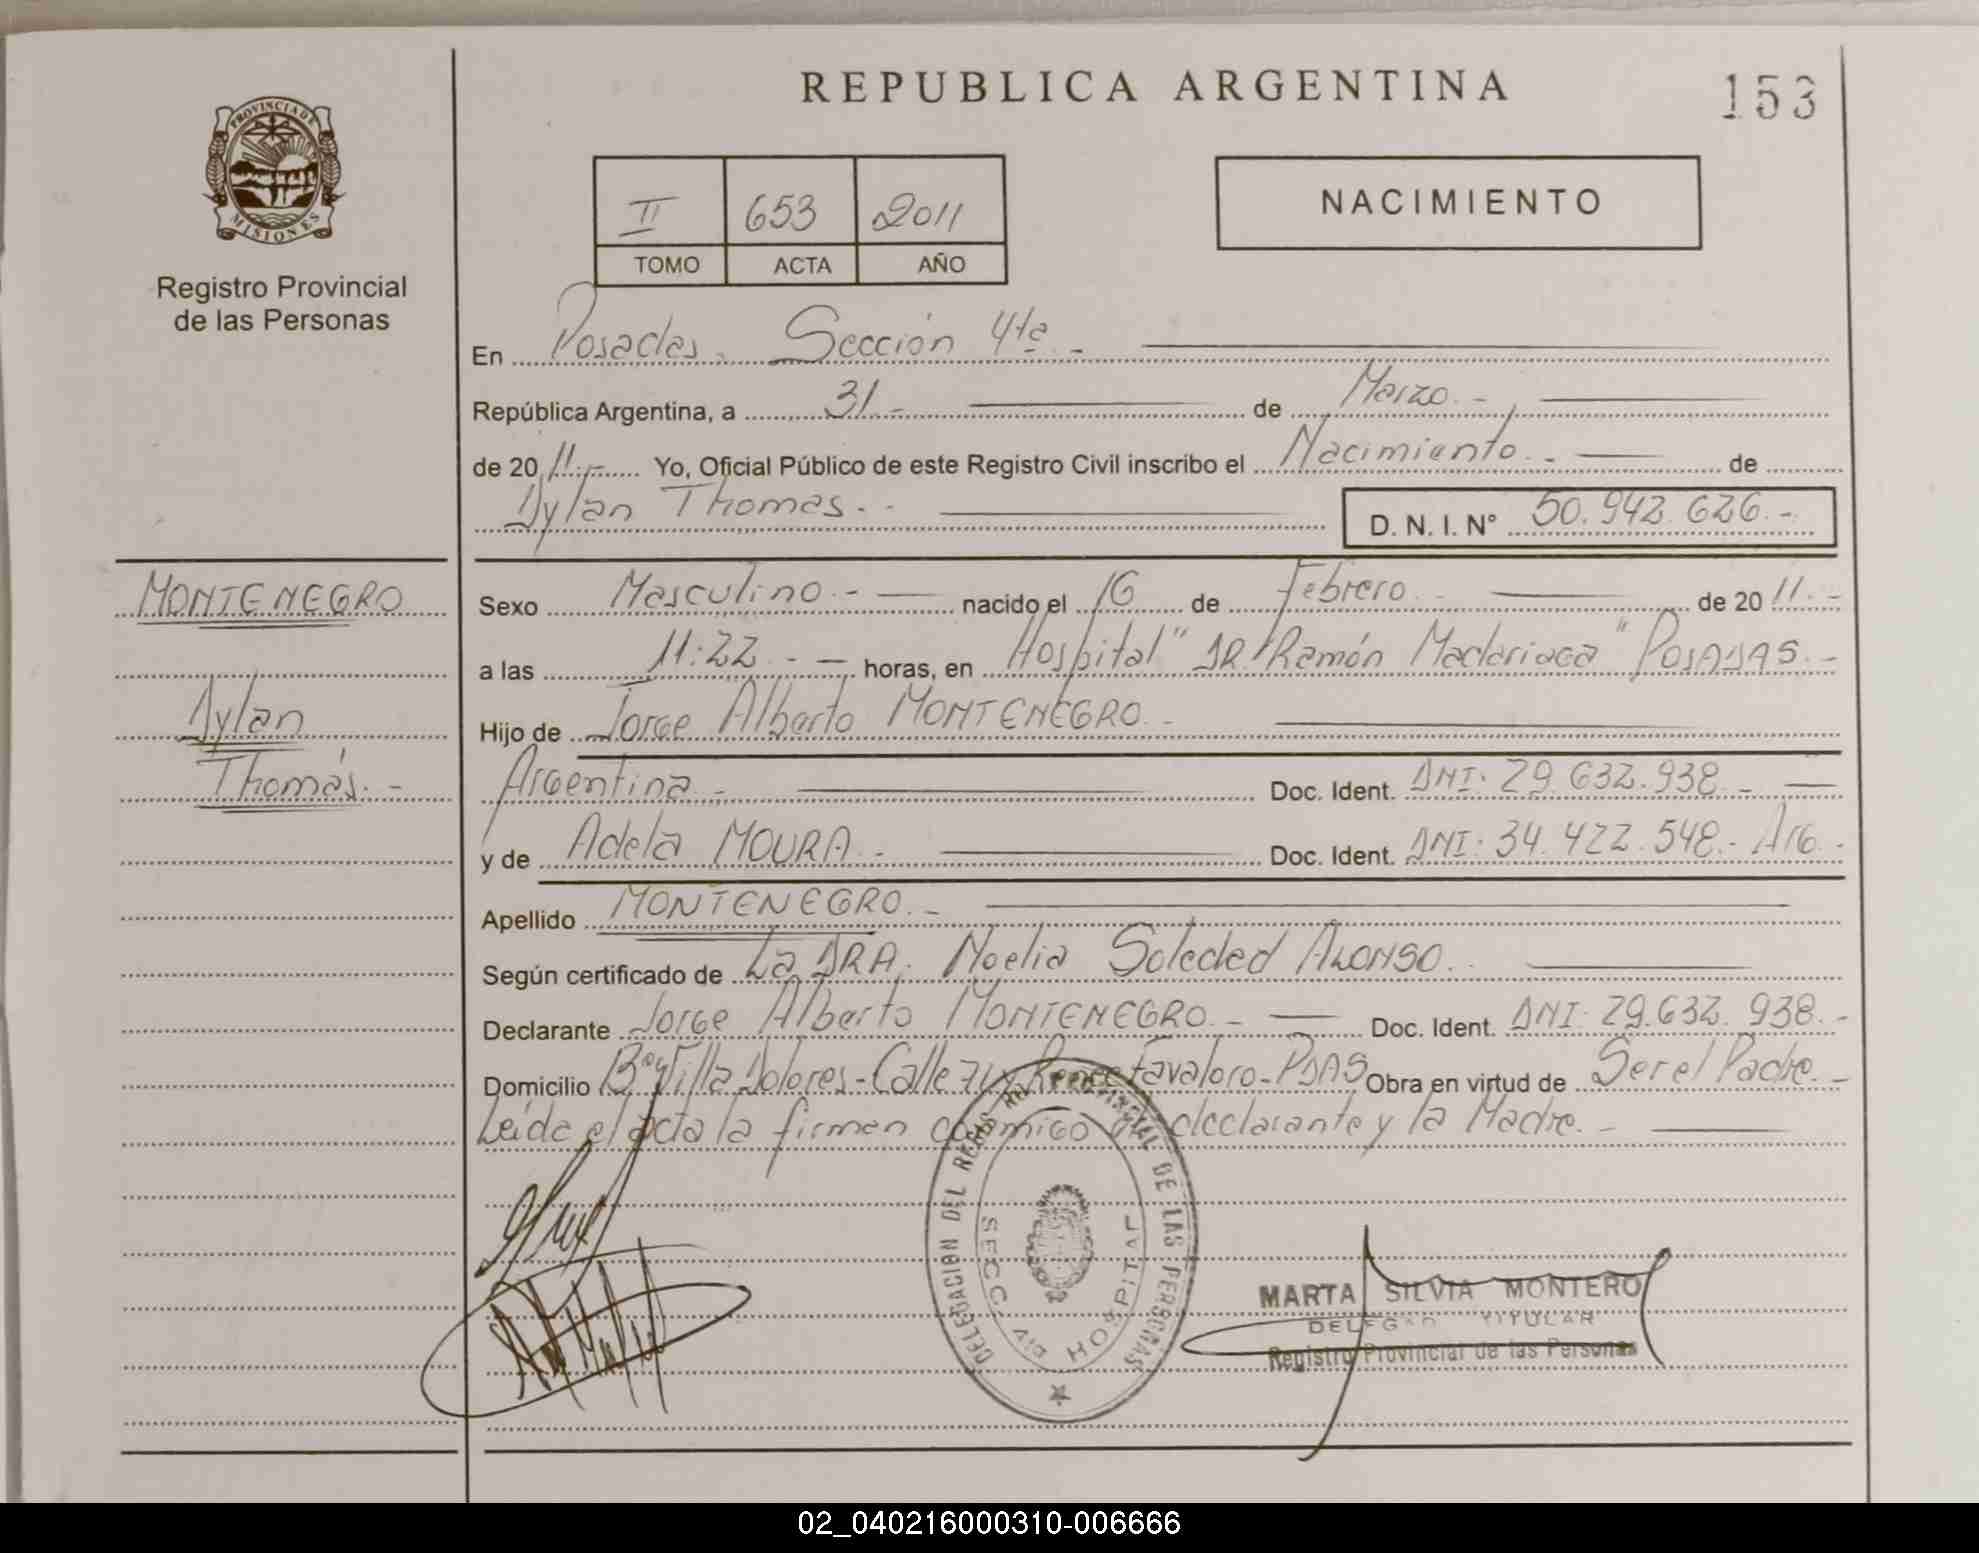 REPUBLICA ARGENTINA
153
PROVINCIA DE
MISIONES
Registro Provincial
de las Personas
II 653 2011
TOMO ACTA AÑO
NACIMIENTO
En Posadas. Sección 4ta.-
República Argentina, a 31.- de Marzo.-
de 20 11.- Yo, Oficial Público de este Registro Civil inscribo el Nacimiento.- de
Dylan Thomas.- D. N. I. N° 50.942.626.-
MONTENEGRO
Dylan
Thomás.-
Sexo Masculino.- nacido el 16 de Febrero.- de 20 11.-
a las 11:22.- horas, en Hospital "DR. Ramón Madariaga" POSADAS.-
Hijo de Jorge Alberto MONTENEGRO.-
Argentina.- Doc. Ident. DNI: 29.632.938.-
y de Adela MOURA.- Doc. Ident. DNI: 34.422.548.- Arg.-
Apellido MONTENEGRO.-
Según certificado de La DRA. Noelia Soledad ALONSO.
Declarante Jorge Alberto MONTENEGRO.- Doc. Ident. DNI: 29.632.938.-
Domicilio B° Villa Dolores-Calle 71 y Rene Favaloro-PDAS Obra en virtud de Ser el Padre.-
Leída el acta la firman conmigo el declarante y la Madre.-
DELEGACION DEL REG. PROVINCIAL DE LAS PERSONAS
SECC. 4ta HOSPITAL
MARTA SILVIA MONTERO
DELEGADA TITULAR
Registro Provincial de las Personas
02_040216000310-006666